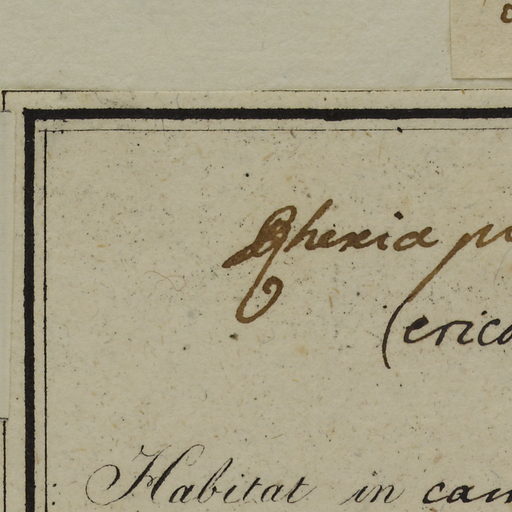 Rhexia
(erico
Habitat in cam